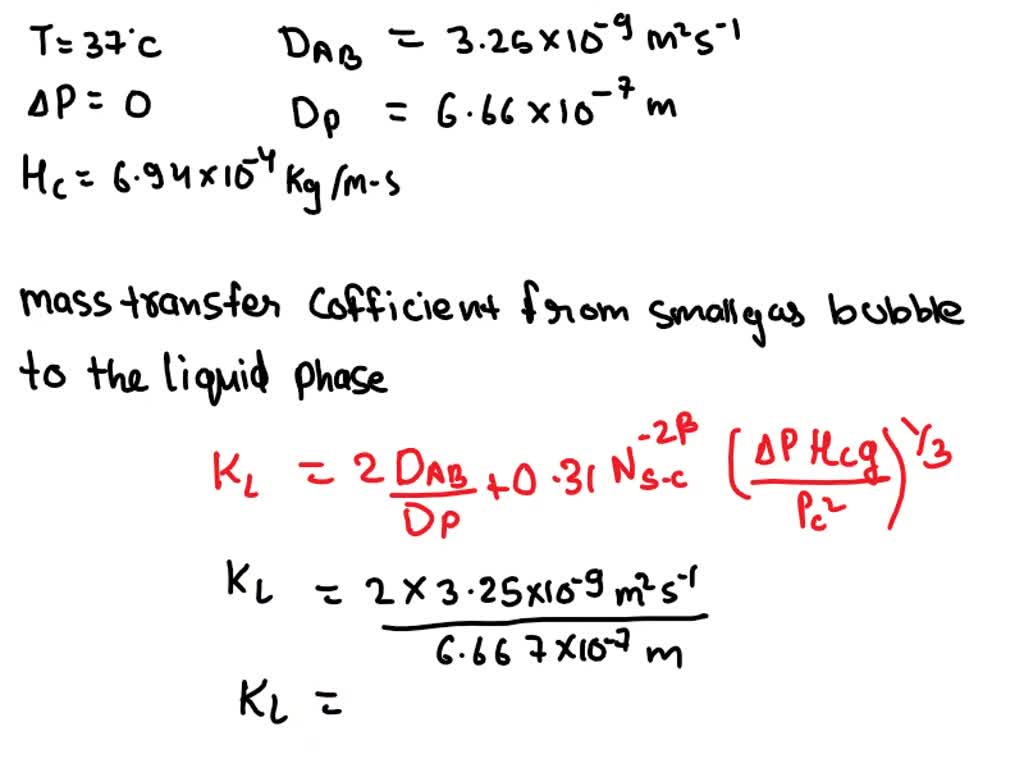 T= 37°C D_AB = 3.25×10^-9 m²s^-1
ΔP= 0 D_P = 6.66×10^-7 m
H_C= 6.94×10^-4 Kg/m-s
mass transfer Cofficient from small gas bubble
to the liquid phase
K_L = 2 D_AB/D_P + 0.31 N_S-C^-2/3 (ΔP H_C g/P_C²)^1/3
K_L = 2 × 3.25×10^-9 m²s^-1
6.667×10^-7 m
K_L =